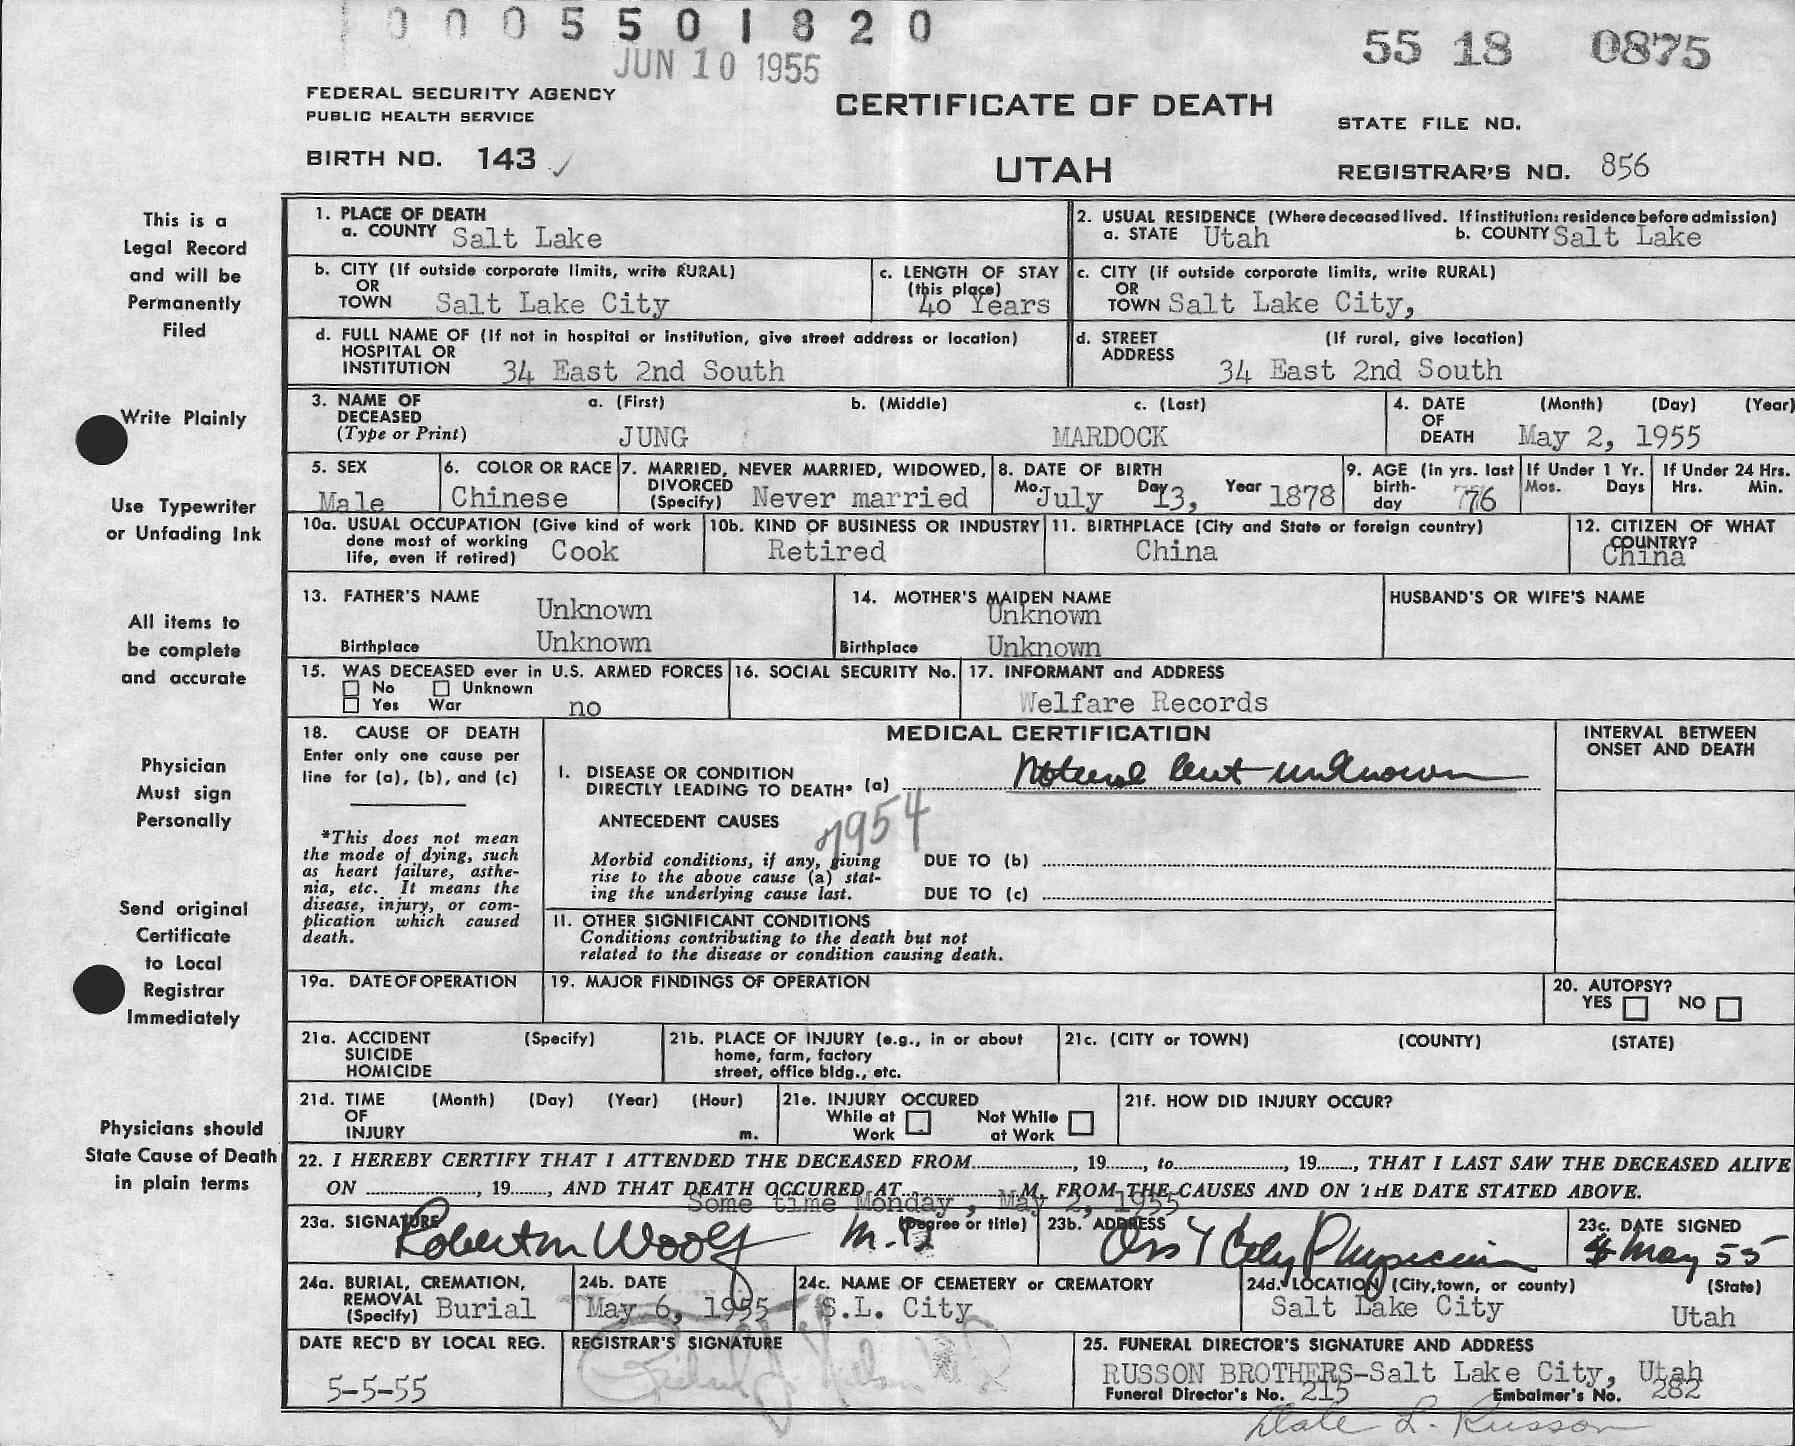 0005501820
JUN 10 1955
55 18 0875
FEDERAL SECURITY AGENCY
PUBLIC HEALTH SERVICE
CERTIFICATE OF DEATH
STATE FILE NO.
BIRTH NO. 143 ✓
UTAH
REGISTRAR'S NO. 856
This is a
Legal Record
and will be
Permanently
Filed
Write Plainly
Use Typewriter
or Unfading Ink
All items to
be complete
and accurate
Physician
Must sign
Personally
Send original
Certificate
to Local
Registrar
Immediately
Physicians should
State Cause of Death
in plain terms
1. PLACE OF DEATH
a. COUNTY Salt Lake
2. USUAL RESIDENCE (Where deceased lived. If institution: residence before admission)
a. STATE Utah b. COUNTY Salt Lake
b. CITY (If outside corporate limits, write RURAL)
OR
TOWN Salt Lake City
c. LENGTH OF STAY
(this place)
40 Years
c. CITY (If outside corporate limits, write RURAL)
OR
TOWN Salt Lake City,
d. FULL NAME OF (If not in hospital or institution, give street address or location)
HOSPITAL OR
INSTITUTION 34 East 2nd South
d. STREET (If rural, give location)
ADDRESS
34 East 2nd South
3. NAME OF a. (First) b. (Middle) c. (Last)
DECEASED
(Type or Print) JUNG MARDOCK
4. DATE (Month) (Day) (Year)
OF
DEATH May 2, 1955
5. SEX
Male
6. COLOR OR RACE
Chinese
7. MARRIED, NEVER MARRIED, WIDOWED,
DIVORCED
(Specify) Never married
8. DATE OF BIRTH
Mo. July Day 13, Year 1878
9. AGE (in yrs. last
birth-
day 76
If Under 1 Yr.
Mos. Days
If Under 24 Hrs.
Hrs. Min.
10a. USUAL OCCUPATION (Give kind of work
done most of working
life, even if retired) Cook
10b. KIND OF BUSINESS OR INDUSTRY
Retired
11. BIRTHPLACE (City and State or foreign country)
China
12. CITIZEN OF WHAT
COUNTRY?
China
13. FATHER'S NAME
Unknown
Birthplace Unknown
14. MOTHER'S MAIDEN NAME
Unknown
Birthplace Unknown
HUSBAND'S OR WIFE'S NAME
15. WAS DECEASED ever in U.S. ARMED FORCES
No Unknown
Yes War no
16. SOCIAL SECURITY No.
17. INFORMANT and ADDRESS
Welfare Records
18. CAUSE OF DEATH
Enter only one cause per
line for (a), (b), and (c)
*This does not mean
the mode of dying, such
as heart failure, asthe-
nia, etc. It means the
disease, injury, or com-
plication which caused
death.
MEDICAL CERTIFICATION
INTERVAL BETWEEN
ONSET AND DEATH
I. DISEASE OR CONDITION
DIRECTLY LEADING TO DEATH* (a) Natural but unknown
ANTECEDENT CAUSES
7954
Morbid conditions, if any, giving
rise to the above cause (a) stat-
ing the underlying cause last.
DUE TO (b)
DUE TO (c)
II. OTHER SIGNIFICANT CONDITIONS
Conditions contributing to the death but not
related to the disease or condition causing death.
19a. DATE OF OPERATION
19. MAJOR FINDINGS OF OPERATION
20. AUTOPSY?
YES NO
21a. ACCIDENT (Specify)
SUICIDE
HOMICIDE
21b. PLACE OF INJURY (e.g., in or about
home, farm, factory
street, office bldg., etc.
21c. (CITY or TOWN) (COUNTY) (STATE)
21d. TIME (Month) (Day) (Year) (Hour)
OF
INJURY m.
21e. INJURY OCCURED
While at Not While
Work at Work
21f. HOW DID INJURY OCCUR?
22. I HEREBY CERTIFY THAT I ATTENDED THE DECEASED FROM............, 19......, to............, 19......, THAT I LAST SAW THE DECEASED ALIVE
ON ............, 19......, AND THAT DEATH OCCURED AT............M. FROM THE CAUSES AND ON THE DATE STATED ABOVE.
Some time Monday, May 2, 1955
23a. SIGNATURE (Degree or title)
Robertm Woolf M.D
23b. ADDRESS
City Physician
23c. DATE SIGNED
4 May 55
24a. BURIAL, CREMATION,
REMOVAL
(Specify) Burial
24b. DATE
May 6, 1955
24c. NAME OF CEMETERY or CREMATORY
S.L. City
24d. LOCATION (City, town, or county) (State)
Salt Lake City Utah
DATE REC'D BY LOCAL REG.
5-5-55
REGISTRAR'S SIGNATURE
25. FUNERAL DIRECTOR'S SIGNATURE AND ADDRESS
RUSSON BROTHERS-Salt Lake City, Utah
Funeral Director's No. 215 Embalmer's No. 282
Dale L. Russon